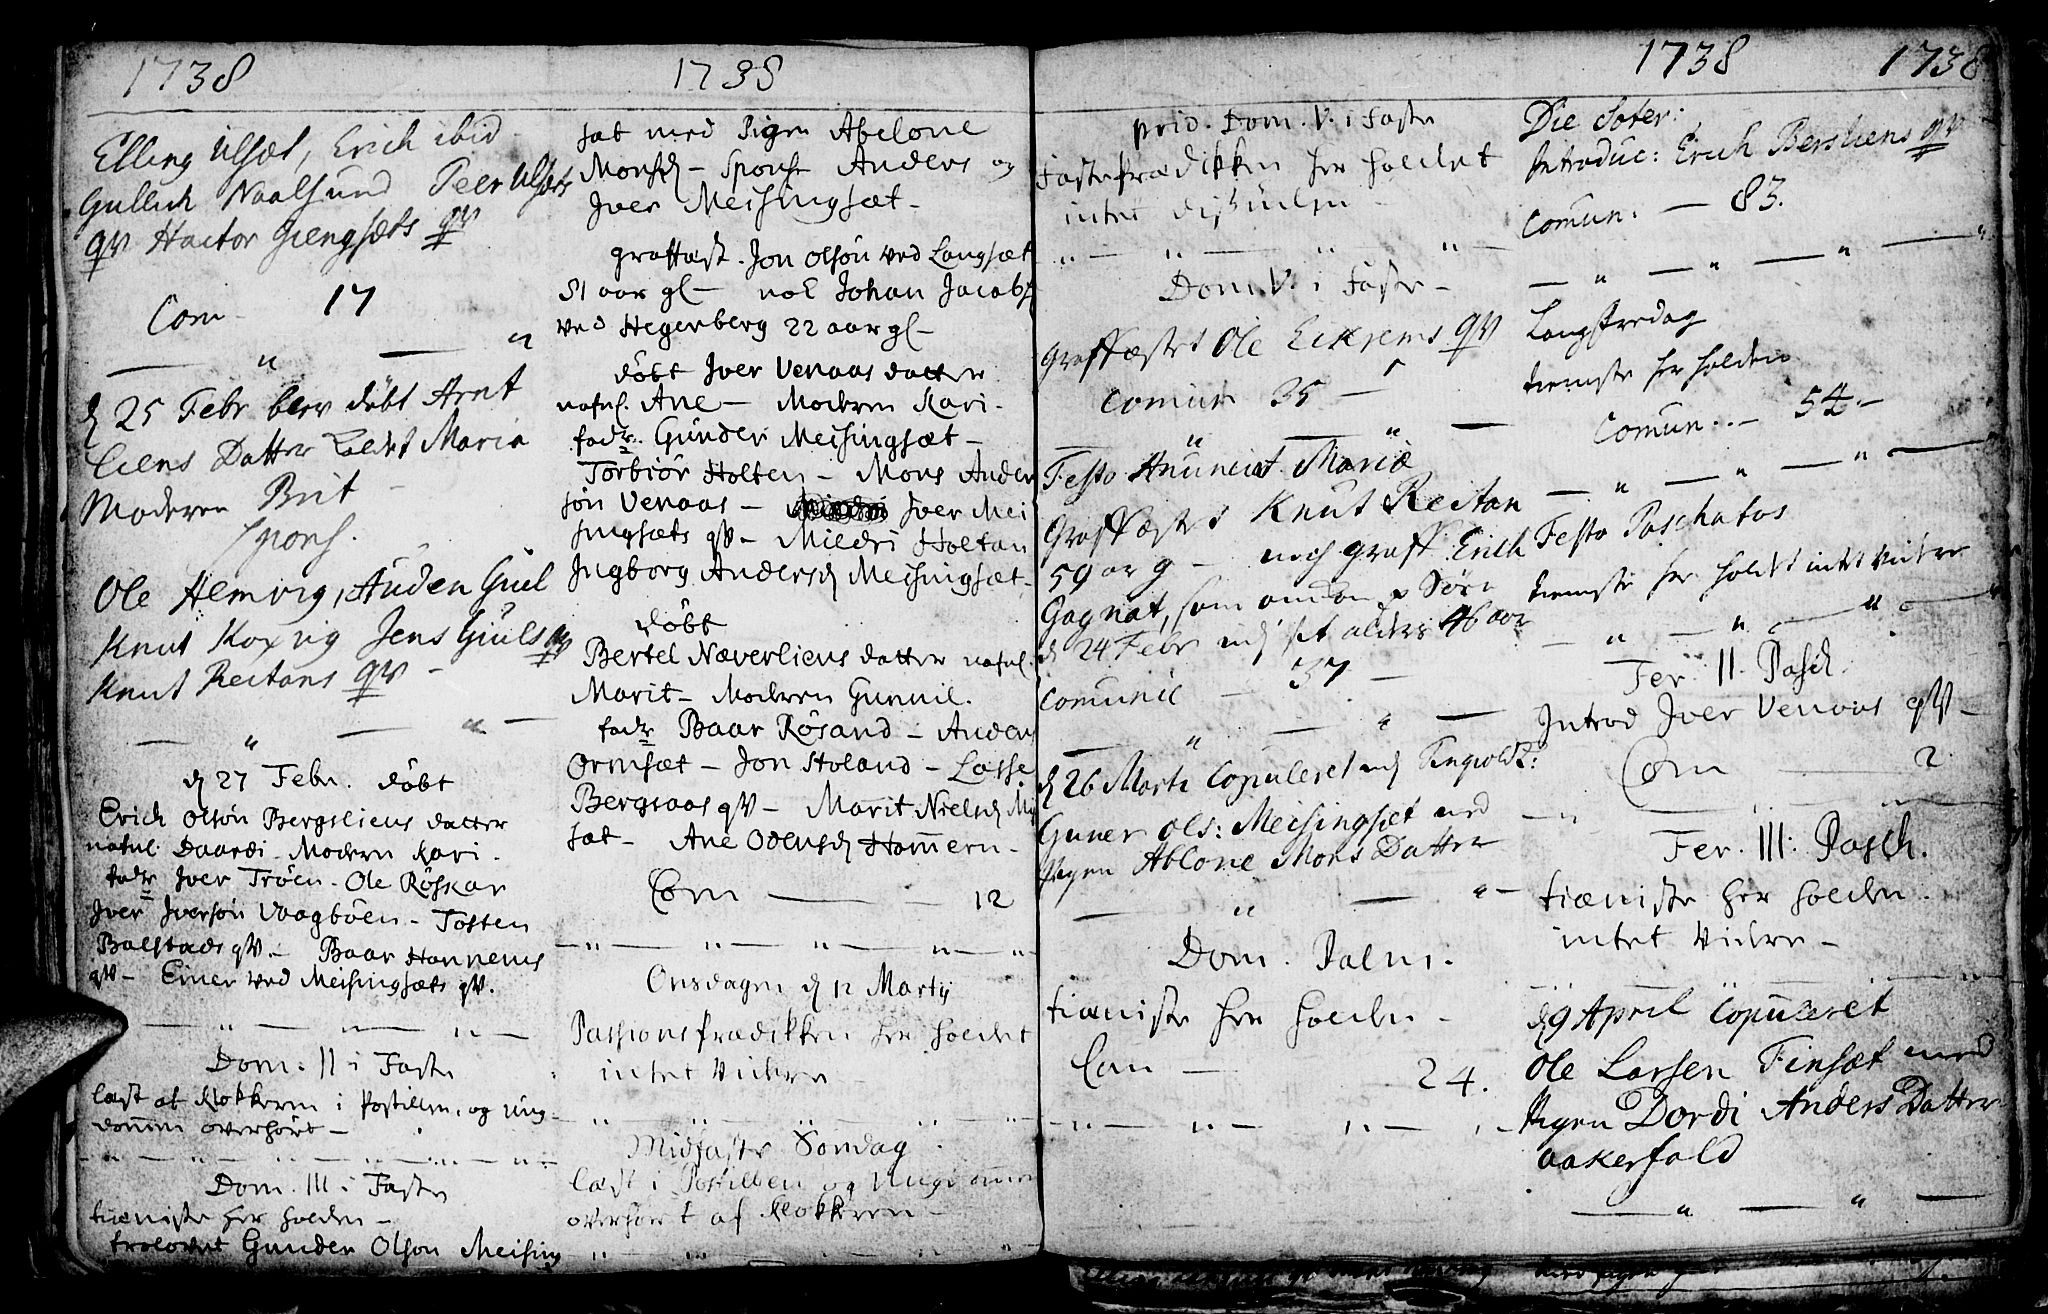 1738
Elling Ulsæt, Erich ibid
Gullich Naalsund Peer Ulsæts
qv Hactor Giengsæts qv
Com 17
d 25 Febr blev döbt Arnt
liens Datter kaldet Maria
Moderen Brit -
spons.
Ole Hemvig, Auden Giul
Knut Koxvig Jens Giuls qv
Knut Rectans qv -
d 27 Febr. döbt
Erich Olsön Bergsliens datter
nafnl. Daardi - Modern Kari -
fadr Iver Tröen - Ole Röskar
Iver Iversön Vaagböen - Tosten
Bolstads qv. - Baar Hannems
qv - Einer ved Meisingsæts qv.
Dom: II i Faste
læst af Klokkeren i Postillen, og ung-
dommen overhört -
Dom. III i Faste
tieniste her holden -
trolovet Gunder Olson Meising
1738
sæt med Pigen Abelone
Monsd - Spons Anders og
Iver Meisingsæt -
graffæst. Jon Olsön ved Langsæt
81 aar gl - nok Johan Jacobs
ved Hegerberg 22 aar gl -
döbt Iver Venaas datter
nafnl. Ane - Modren Kari -
fadr. Gunder Meisingsæt -
Torbiör Holten - Mons Ander
sön Venaas - Iver Mei
singsæts qv - Mildri Holtan
Ingborg Andersd Meisingsæt -
döbt
Bertel Næverliens datter nafnl.
Marit - Modren Gunnil.
fadr Baar Rösand - Anders
Ormsæt - Jon Stoland - Lasse
Bergsaas qv - Marit Nielsd
sæt - Ane Odensd Hammern -
Com 12
Onsdagen d 12 Martij
Passions prædikken her holdet
intet videre
Midfaste Söndag
læst i Postillen og Ungdommen
overhört af Klokkeren -
prid. Dom. V. i Faste
Fasteprædikken her holdet
intet
Dom. V. i Faste -
Graffæstet Ole Eikrems qv
Comun 35 -
Festo Anunciat. Mariæ
Graffæstet Knut Rectan
59 ar g - nock graff. Erich
Gagnat, som
d 24 Febr alder 46 aar
comunic - 37 -
d 26 Marti Copuleret Tingvold:
Guner Ols: Meisingsæt med
Pigen Ablone Mons Datter
Dom. Palm:
tienniste her holden -
Com - 24.
1738 1738
Die
Introduc: Erich Bersliens qv
Comun. - 83.
Langfredag
tienniste her holden
Comun.. - 54 -
Festo Paschatos
tienniste her holdt intet videre
Fer. II. Pasch.
Introd Iver Venaas qv -
Com 2
Fer. III: Pasch.
tienniste her holden.
intet videre -
d 9 April Copuleret
Ole Larsen Finsæt med
Pigen Dordi Anders Datter
aakerfald